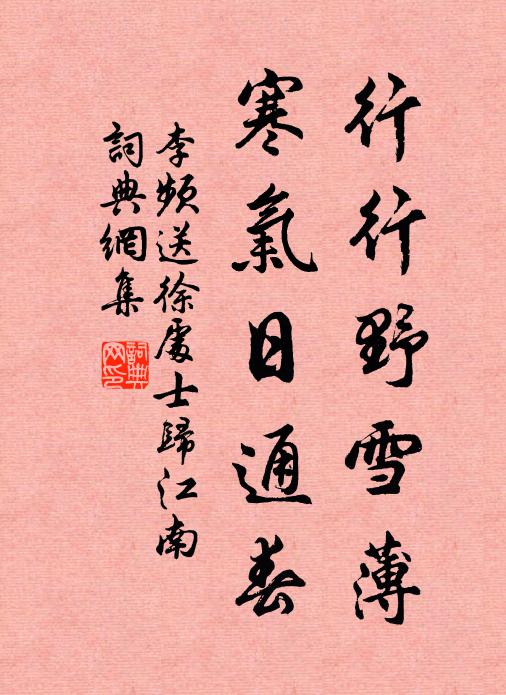 行行野雪薄
寒氣日通春
李頻送徐處士歸江南
詞典網集
詞典
网印